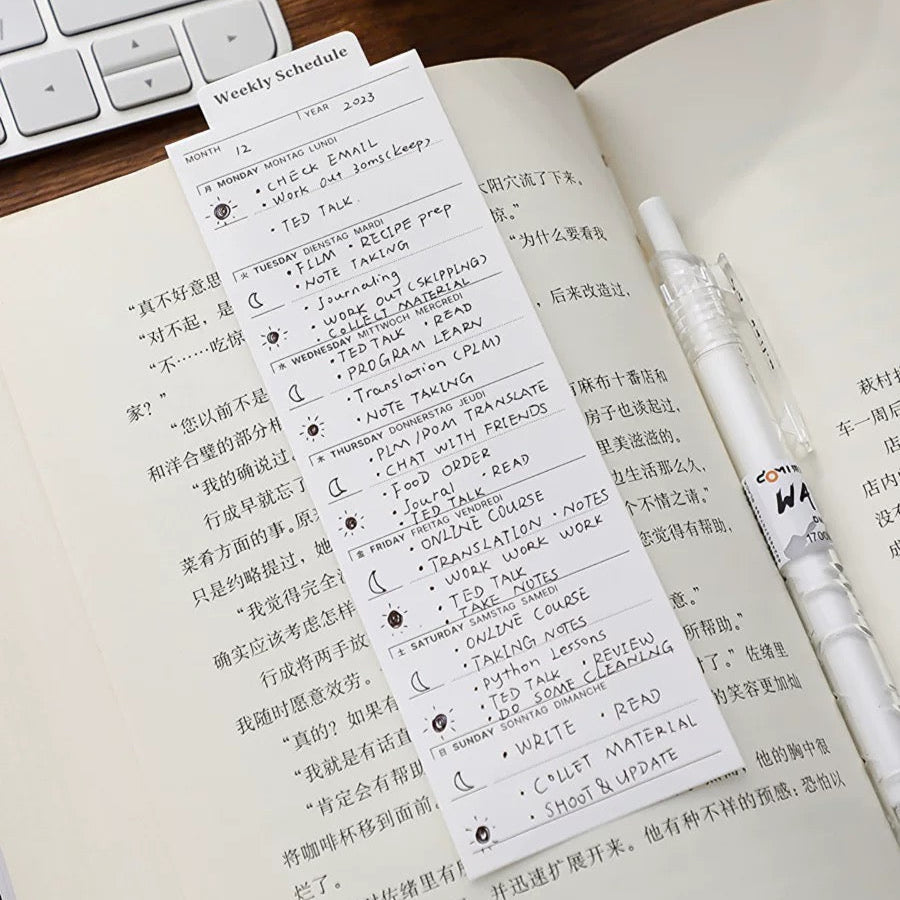 Weekly Schedule
MONTH 12 YEAR 2023
月 MONDAY MONTAG LUNDI
• CHECK EMAIL
• Work out 30ms(keep)
• TED TALK
火 TUESDAY DIENSTAG MARDI
• FILM • RECIPE prep
• NOTE TAKING
• Journaling
• WORK OUT (SKIPPING)
• COLLECT MATERIAL
水 WEDNESDAY MITTWOCH MERCREDI
• TED TALK • READ
• PROGRAM LEARN
• Translation (PLM)
• NOTE TAKING
木 THURSDAY DONNERSTAG JEUDI
• PLM/POM TRANSLATE
• CHAT WITH FRIENDS
• FOOD ORDER
• Joural • READ
• TED TALK
金 FRIDAY FREITAG VENDREDI
• ONLINE COURSE
• TRANSLATION • NOTES
• WORK WORK WORK
• TED TALK
• TAKE NOTES
土 SATURDAY SAMSTAG SAMEDI
• ONLINE COURSE
• TAKING NOTES
• python Lessons
• TED TALK • REVIEW
• DO SOME CLEANING
日 SUNDAY SONNTAG DIMANCHE
• WRITE • READ
• COLLET MATERIAL
• SHOOT & UPDATE
太阳穴流了下来。
惊。”
“为什么要看我
“真不好意思
“对不起，是
，后来改造过，
“不……吃惊
家？”
“您以前不是
有麻布十番店和
和洋合璧的部分
房子也谈起过，
“我的确说过
里美滋滋的。
行成早就忘了
边生活那么久，
菜肴方面的事。原
个不情之请。”
只是约略提过，她
您觉得有帮助，
“我觉得完全
确实应该考虑怎样
意。”
行成将两手放
所帮助。”
我随时愿意效劳。
了。”佐绪里
“真的？如果有
的笑容更加灿
“我就是有话直
“肯定会有帮助
他的胸中很
将咖啡杯移到面前。
有种不祥的预感；恐怕以
烂了。
对佐绪里有
并迅速扩展开来。他
萩村
车一周后
店
店内
没
成
WA
1700